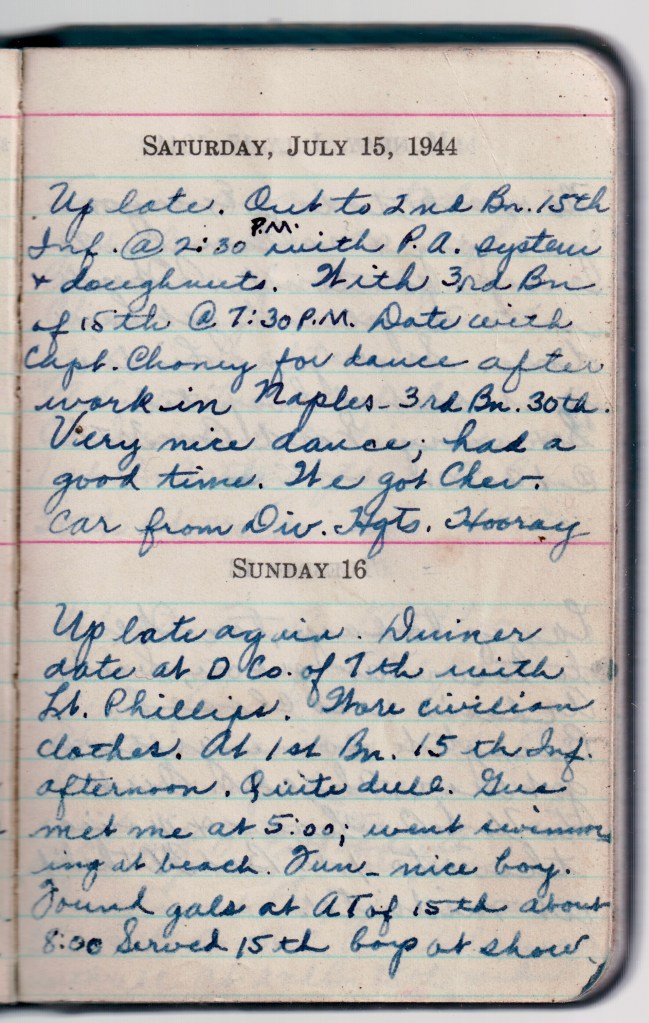 SATURDAY, JULY 15, 1944
Up late. Out to 2nd Bn. 15th
Inf. @ 2:30 P.M. with P.A. system
+ doughnuts. With 3rd Bn
of 15th @ 7:30 P.M. Date with
Capt. Choney for dance after
work in Naples - 3rd Bn. 30th.
Very nice dance; had a
good time. We got Chev.
car from Div. Hqts. Hooray
SUNDAY 16
Up late again. Dinner
date at D Co. of 7th with
Lt. Phillips. Wore civilian
clothes. At 1st Bn. 15th Inf.
afternoon. Quite dull. Gus
met me at 5:00; went swimm-
ing at beach. Fun - nice boy.
Found gals at AT of 15th about
8:00 Served 15th boys at show.